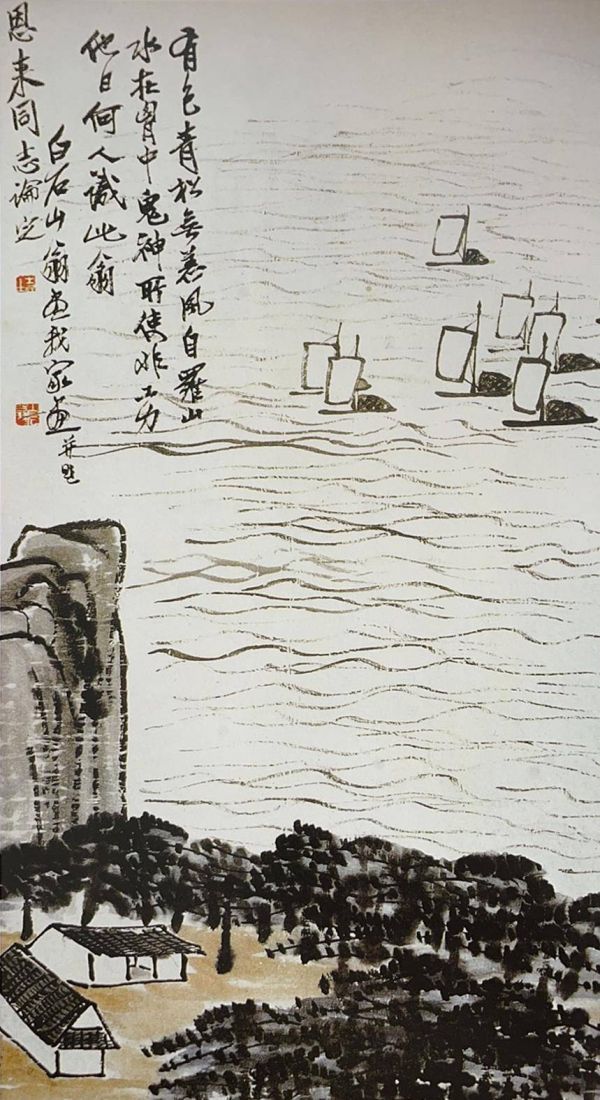 有色青松無恙風自羅山
水在胷中鬼神所使非工力
他日何人識此翁
白石山翁畫我家畫并題
恩来同志論定